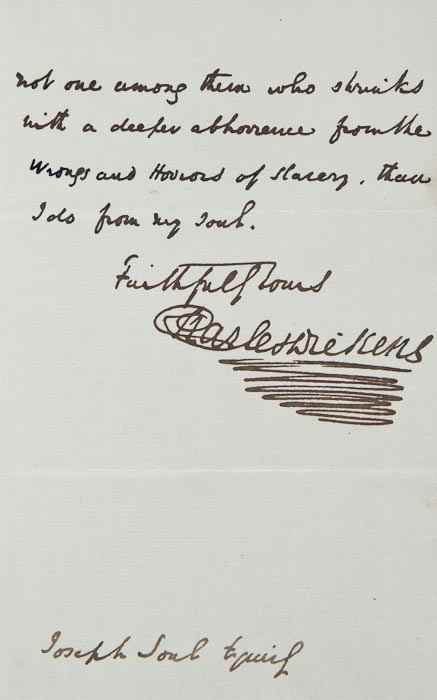 not one among them who shrinks
with a deeper abhorrence from the
Wrongs and Horrors of Slavery, than
I do from my Soul.
Faithfully Yours
Charles Dickens
Joseph Soul Esquire